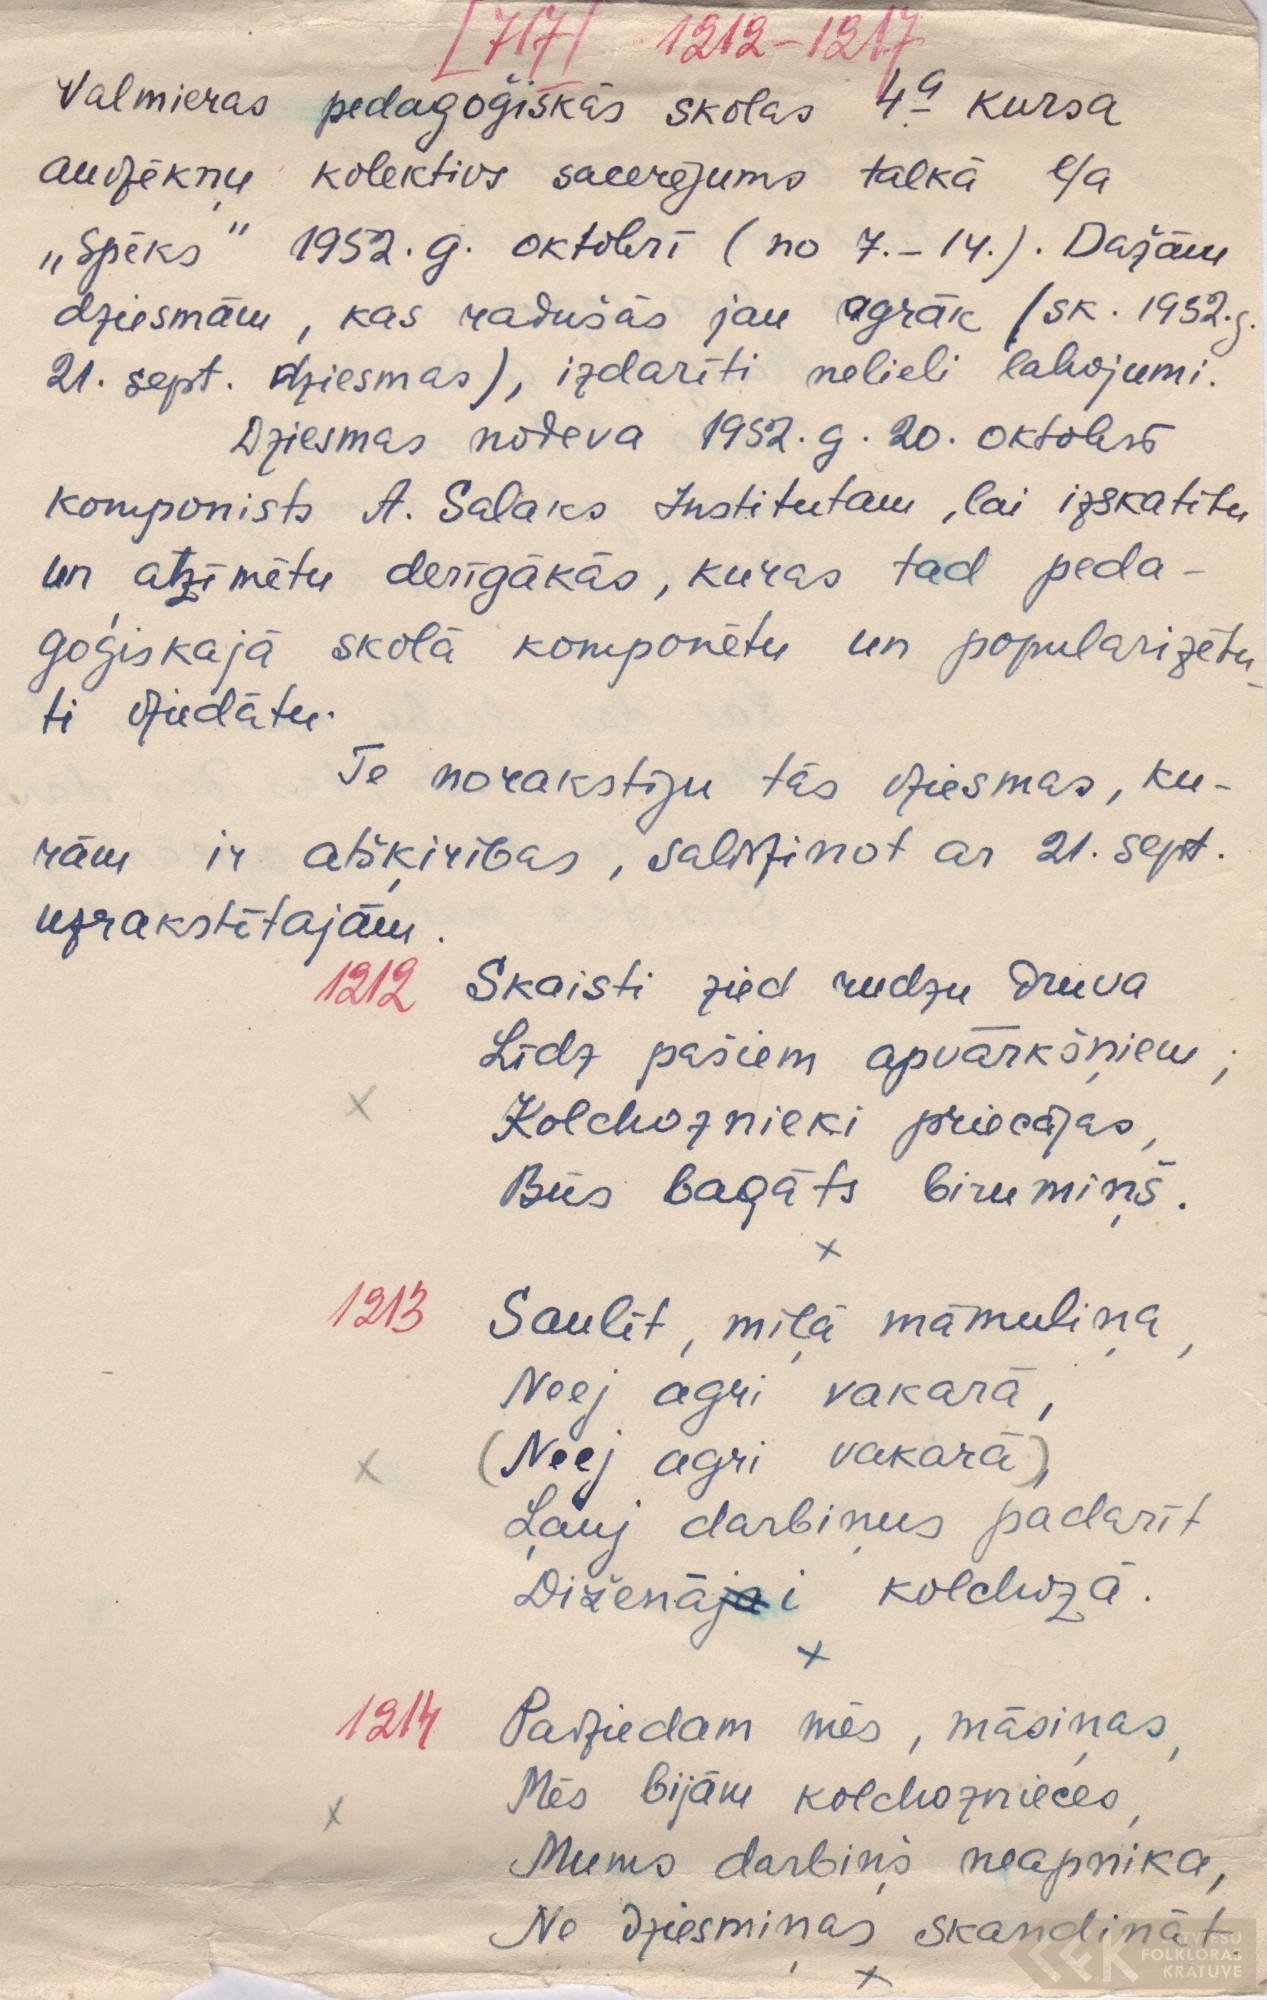 [717] 1212-1217
Valmieras pedagoģiskās skolas 4ª kursa
audzēkņu kolektivs sacerējums talkā l/a
„Spēks" 1952. g. oktobrī (no 7.-14.). Dažām
dziesmām, kas radušās jau agrāk (sk. 1952. g.
21. sept. dziesmas), izdarīti nelieli labojumi.
Dziesmas nodeva 1952. g. 20. oktobrī
komponists A. Salaks Institutam, lai izskatītu
un atzīmētu derīgākās, kuras tad peda-
goģiskajā skolā komponētu un popularizētu,
ti dziedātu.
Te norakstīju tās dziesmas, ku-
rām ir atšķirības, salīdzinot ar 21. sept.
uzrakstītajām.
1212 Skaisti zied rudzu druva
Līdz pašiem apvārkšņiem;
x Kolchoznieki priecājas,
Būs bagāts birumiņš.
x
1213 Saulīt, mīļā māmuliņa,
Neej agri vakarā,
x (Neej agri vakarā),
Ļauj darbiņus padarīt
Diženāji kolchozā.
x
1214 Padziedam mēs, māsiņas,
x Mēs bijām kolchoznieces,
Mums darbiņš neapnika,
Ne dziesmiņas skandināt.
x
LATVIEŠU
FOLKLORAS
KRĀTUVE